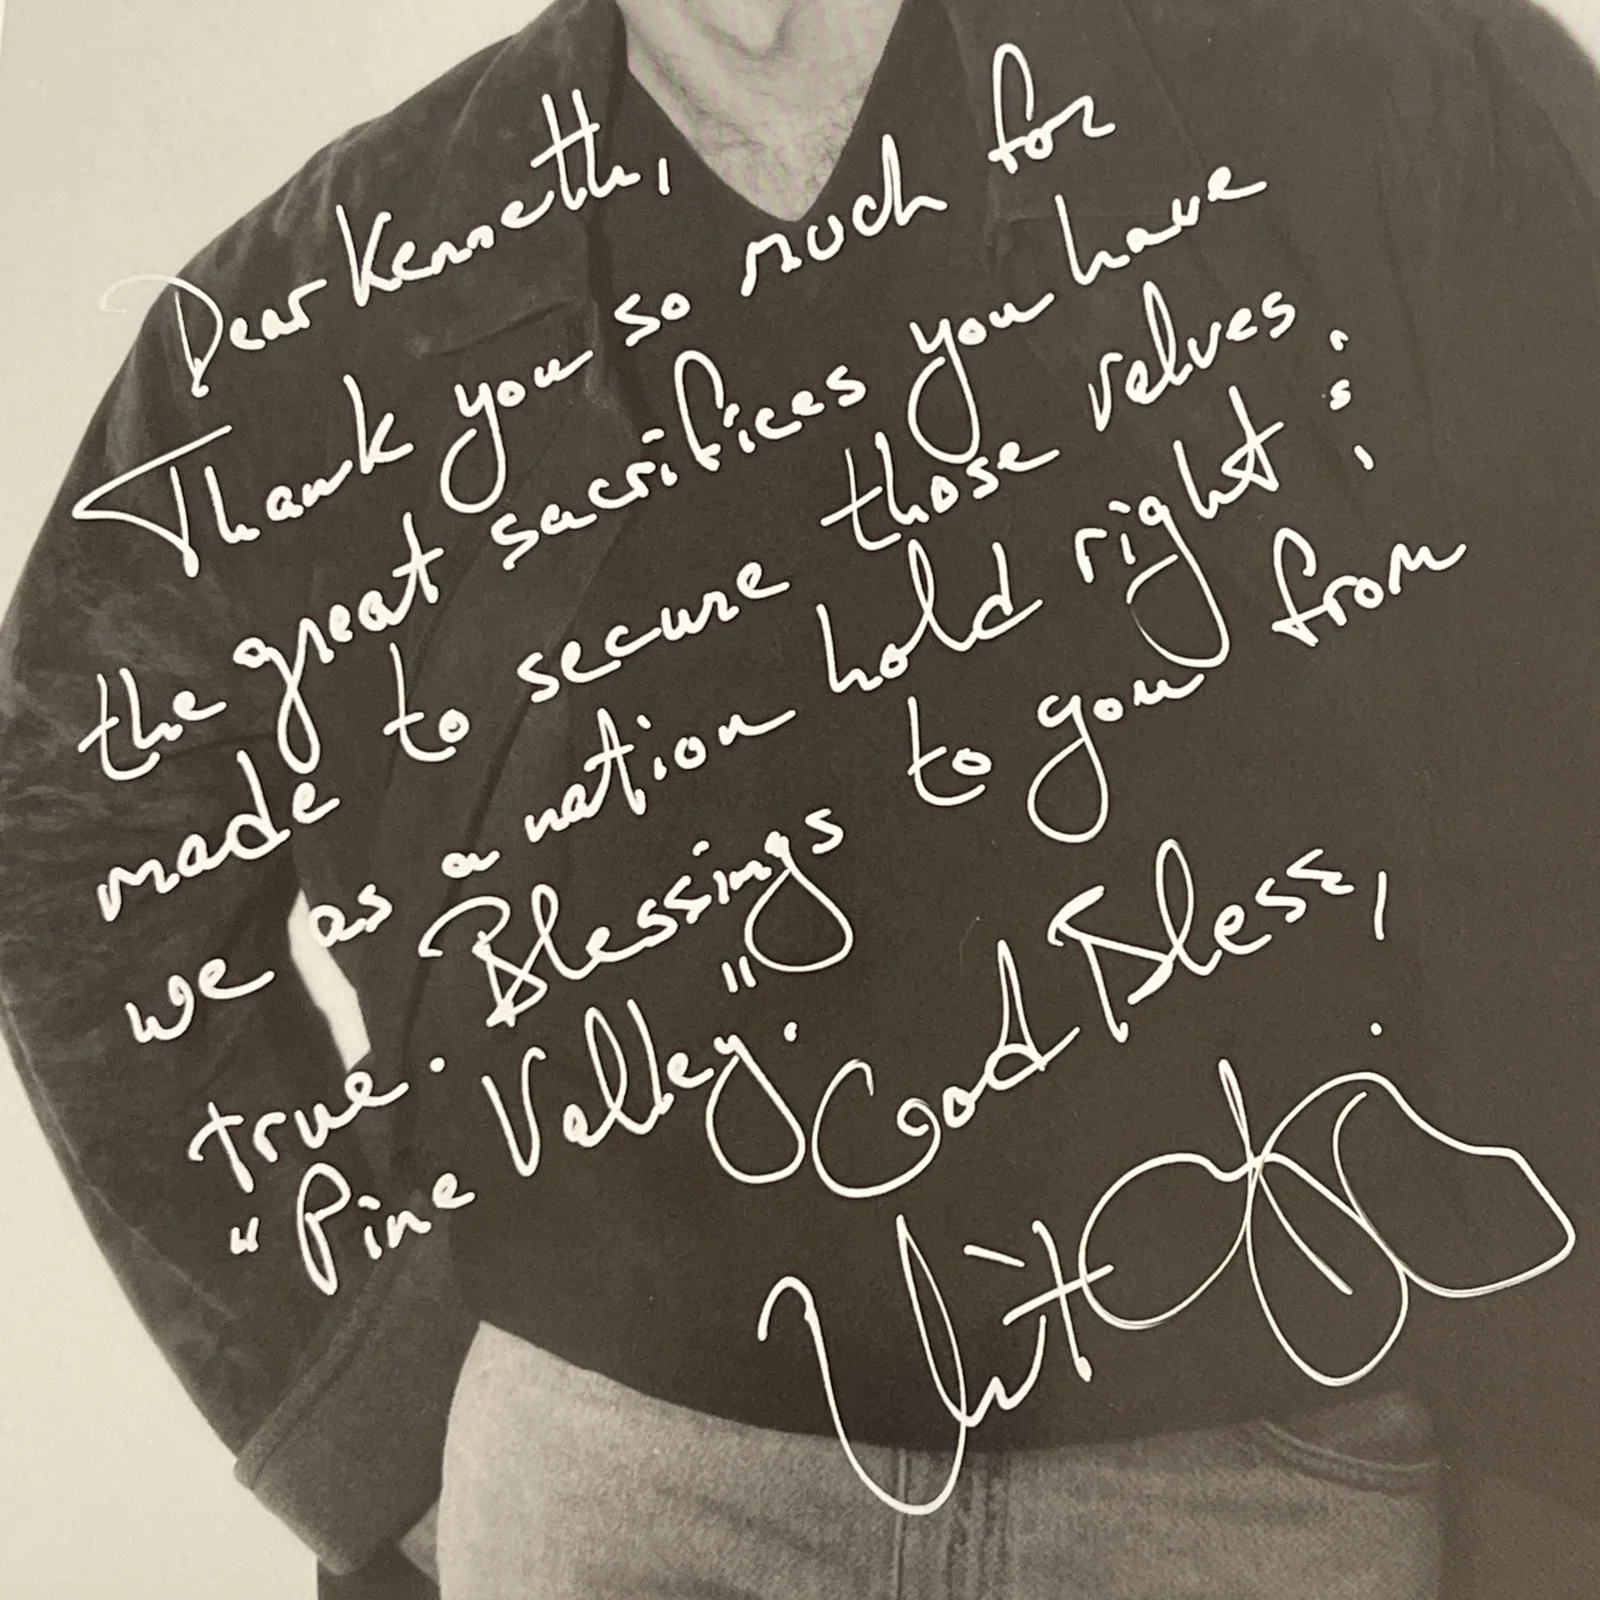 Dear Kenneth,
Thank you so much for
the great sacrifices you have
made to secure those values
we as a nation hold right &
true. Blessings to you from
"Pine Valley". God Bless,